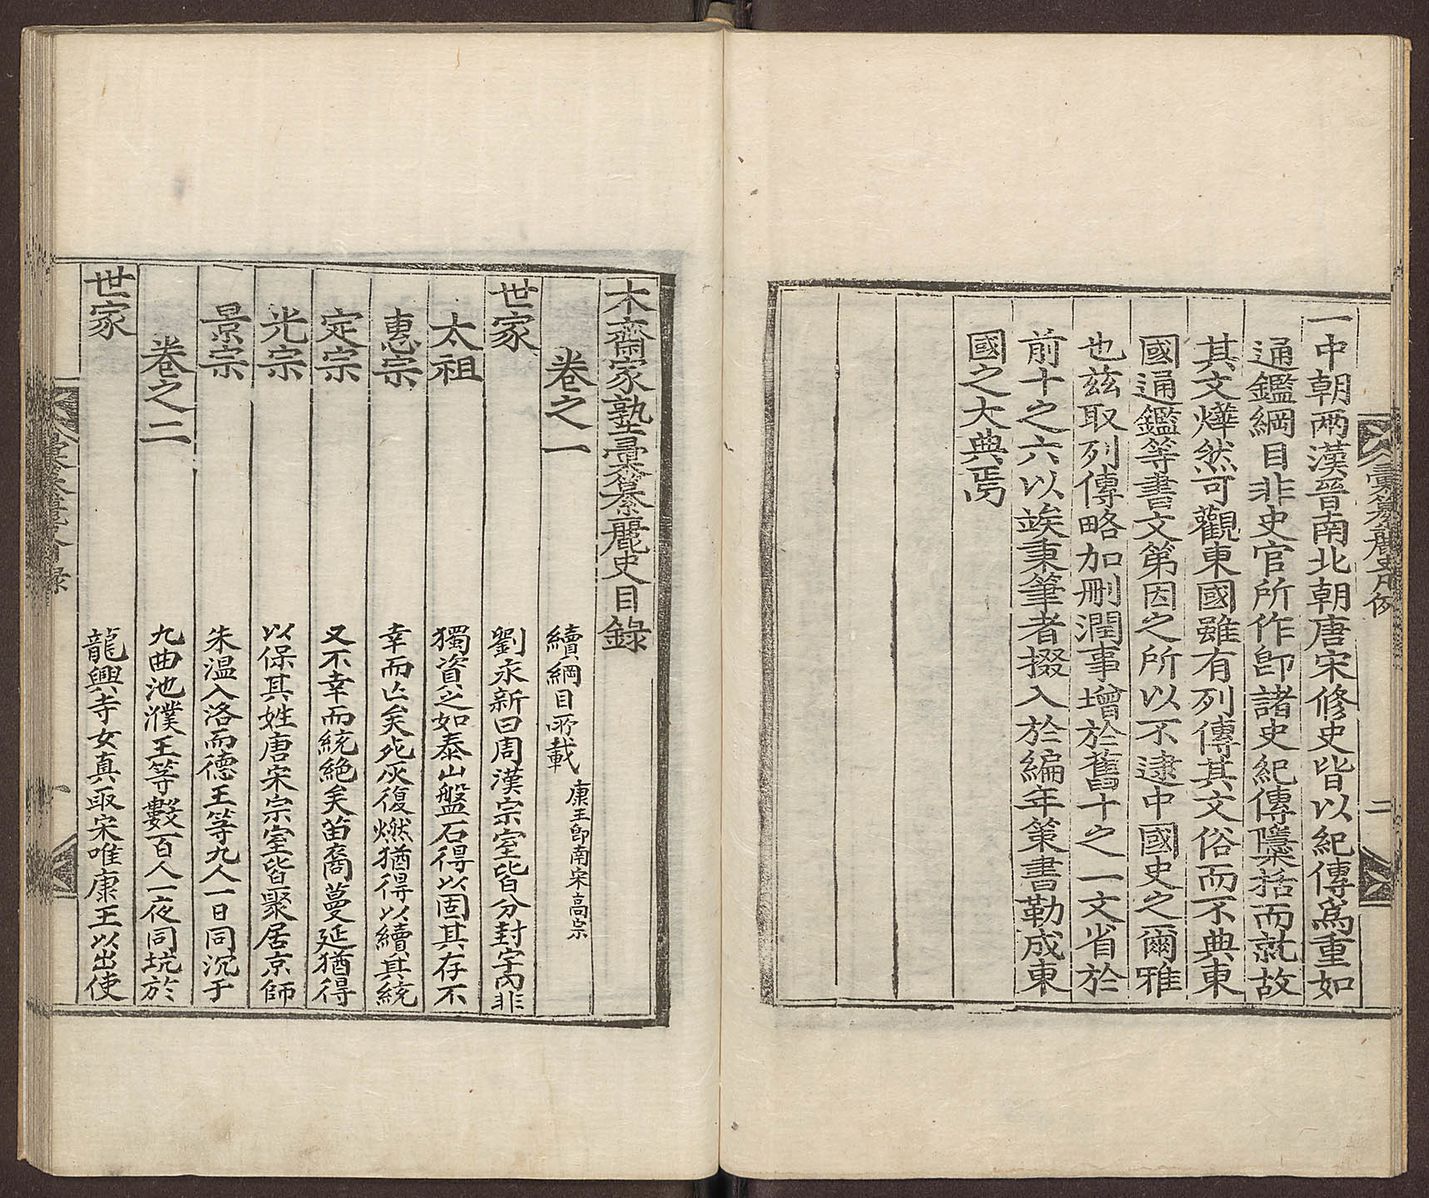 彙纂麗史凡例
二
一中朝兩漢晉南北朝唐宋修史皆以紀傳爲重如
通鑑綱目非史官所作卽諸史紀傳檃括而就故
其文燁然可觀東國雖有列傳其文俗而不典東
國通鑑等書文第因之所以不逮中國史之爾雅
也玆取列傳略加刪潤事增於舊十之一文省於
前十之六以竢秉筆者掇入於編年策書勒成東
國之大典焉
木齋家塾彙纂麗史目錄
卷之一
續綱目所載
康王卽南宋高宗
世家
劉永新曰周漢宗室皆分封宇內非
太祖
獨資之如泰山盤石得以固其存不
惠宗
幸而亡矣死灰復燃猶得以續其統
定宗
又不幸而統絶矣苗裔蔓延猶得
光宗
以保其姓唐宋宗室皆聚居京師
景宗
朱温入洛而德王等九人一日同沉于
卷之二
九曲池濮王等數百人一夜同坑於
世家
龍興寺女真取宋唯康王以出使